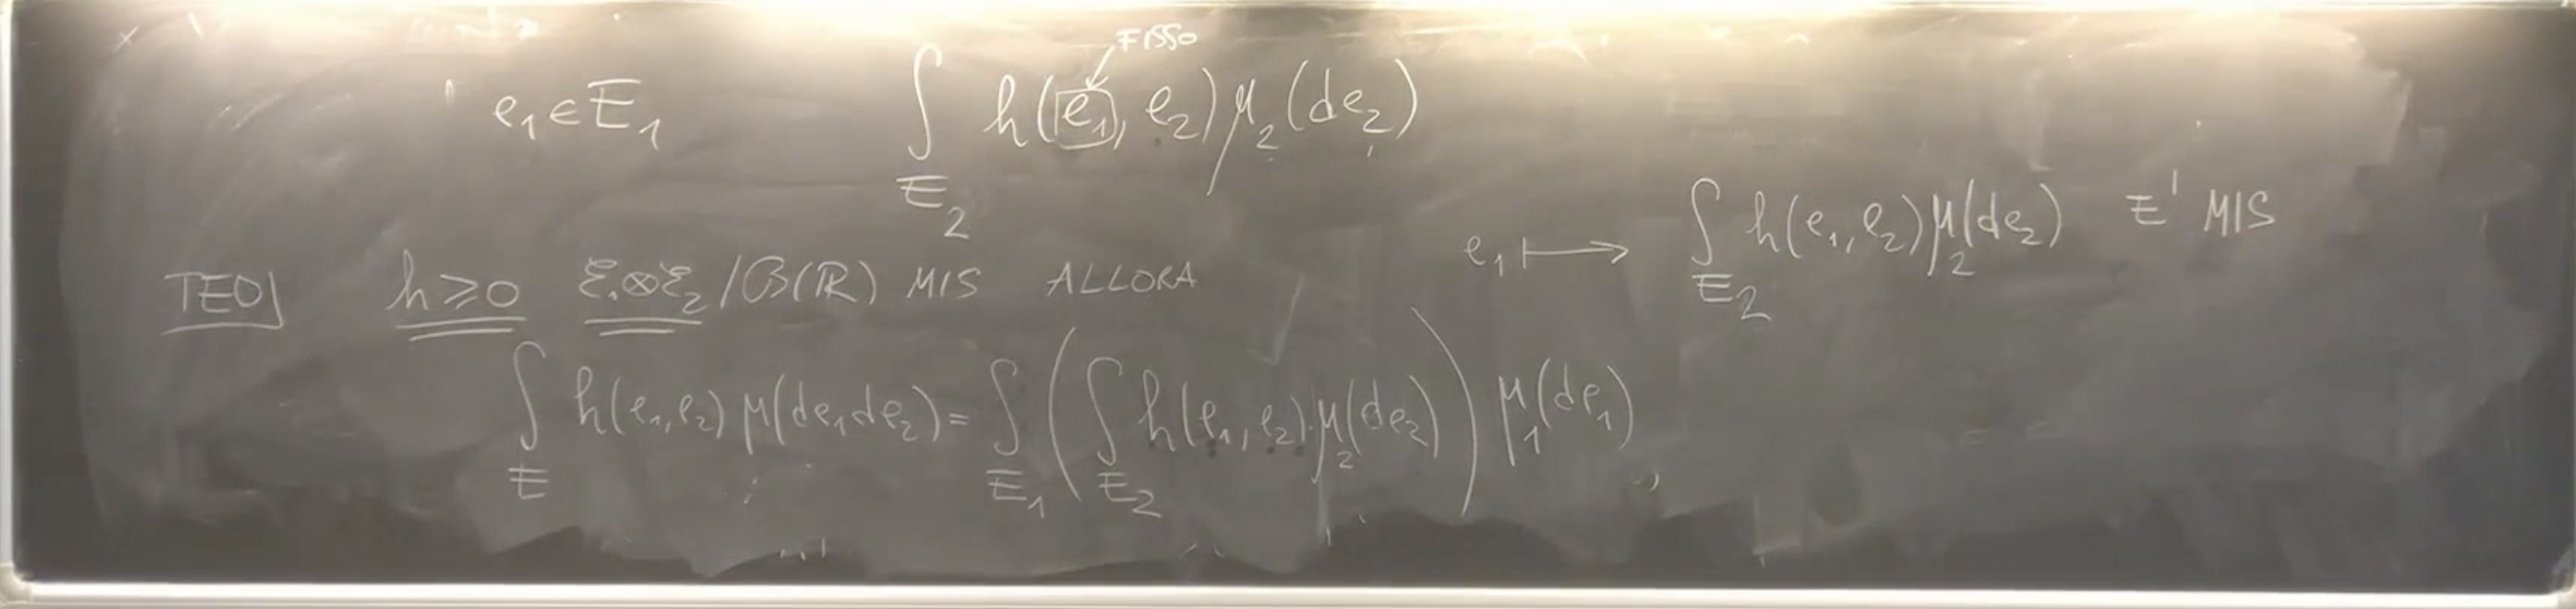 FISSO
e₁ ∈ E₁ ∫_{E₂} h(e₁, e₂) μ₂(de₂)
e₁ ⟼ ∫_{E₂} h(e₁, e₂) μ₂(de₂) E' MIS
TEO] h ⩾ 0 ℰ₁⊗ℰ₂/ℬ(ℝ) MIS ALLORA
∫_E h(e₁, e₂) μ(de₁de₂) = ∫_{E₁} ( ∫_{E₂} h(e₁, e₂) μ₂(de₂) ) μ₁(de₁)